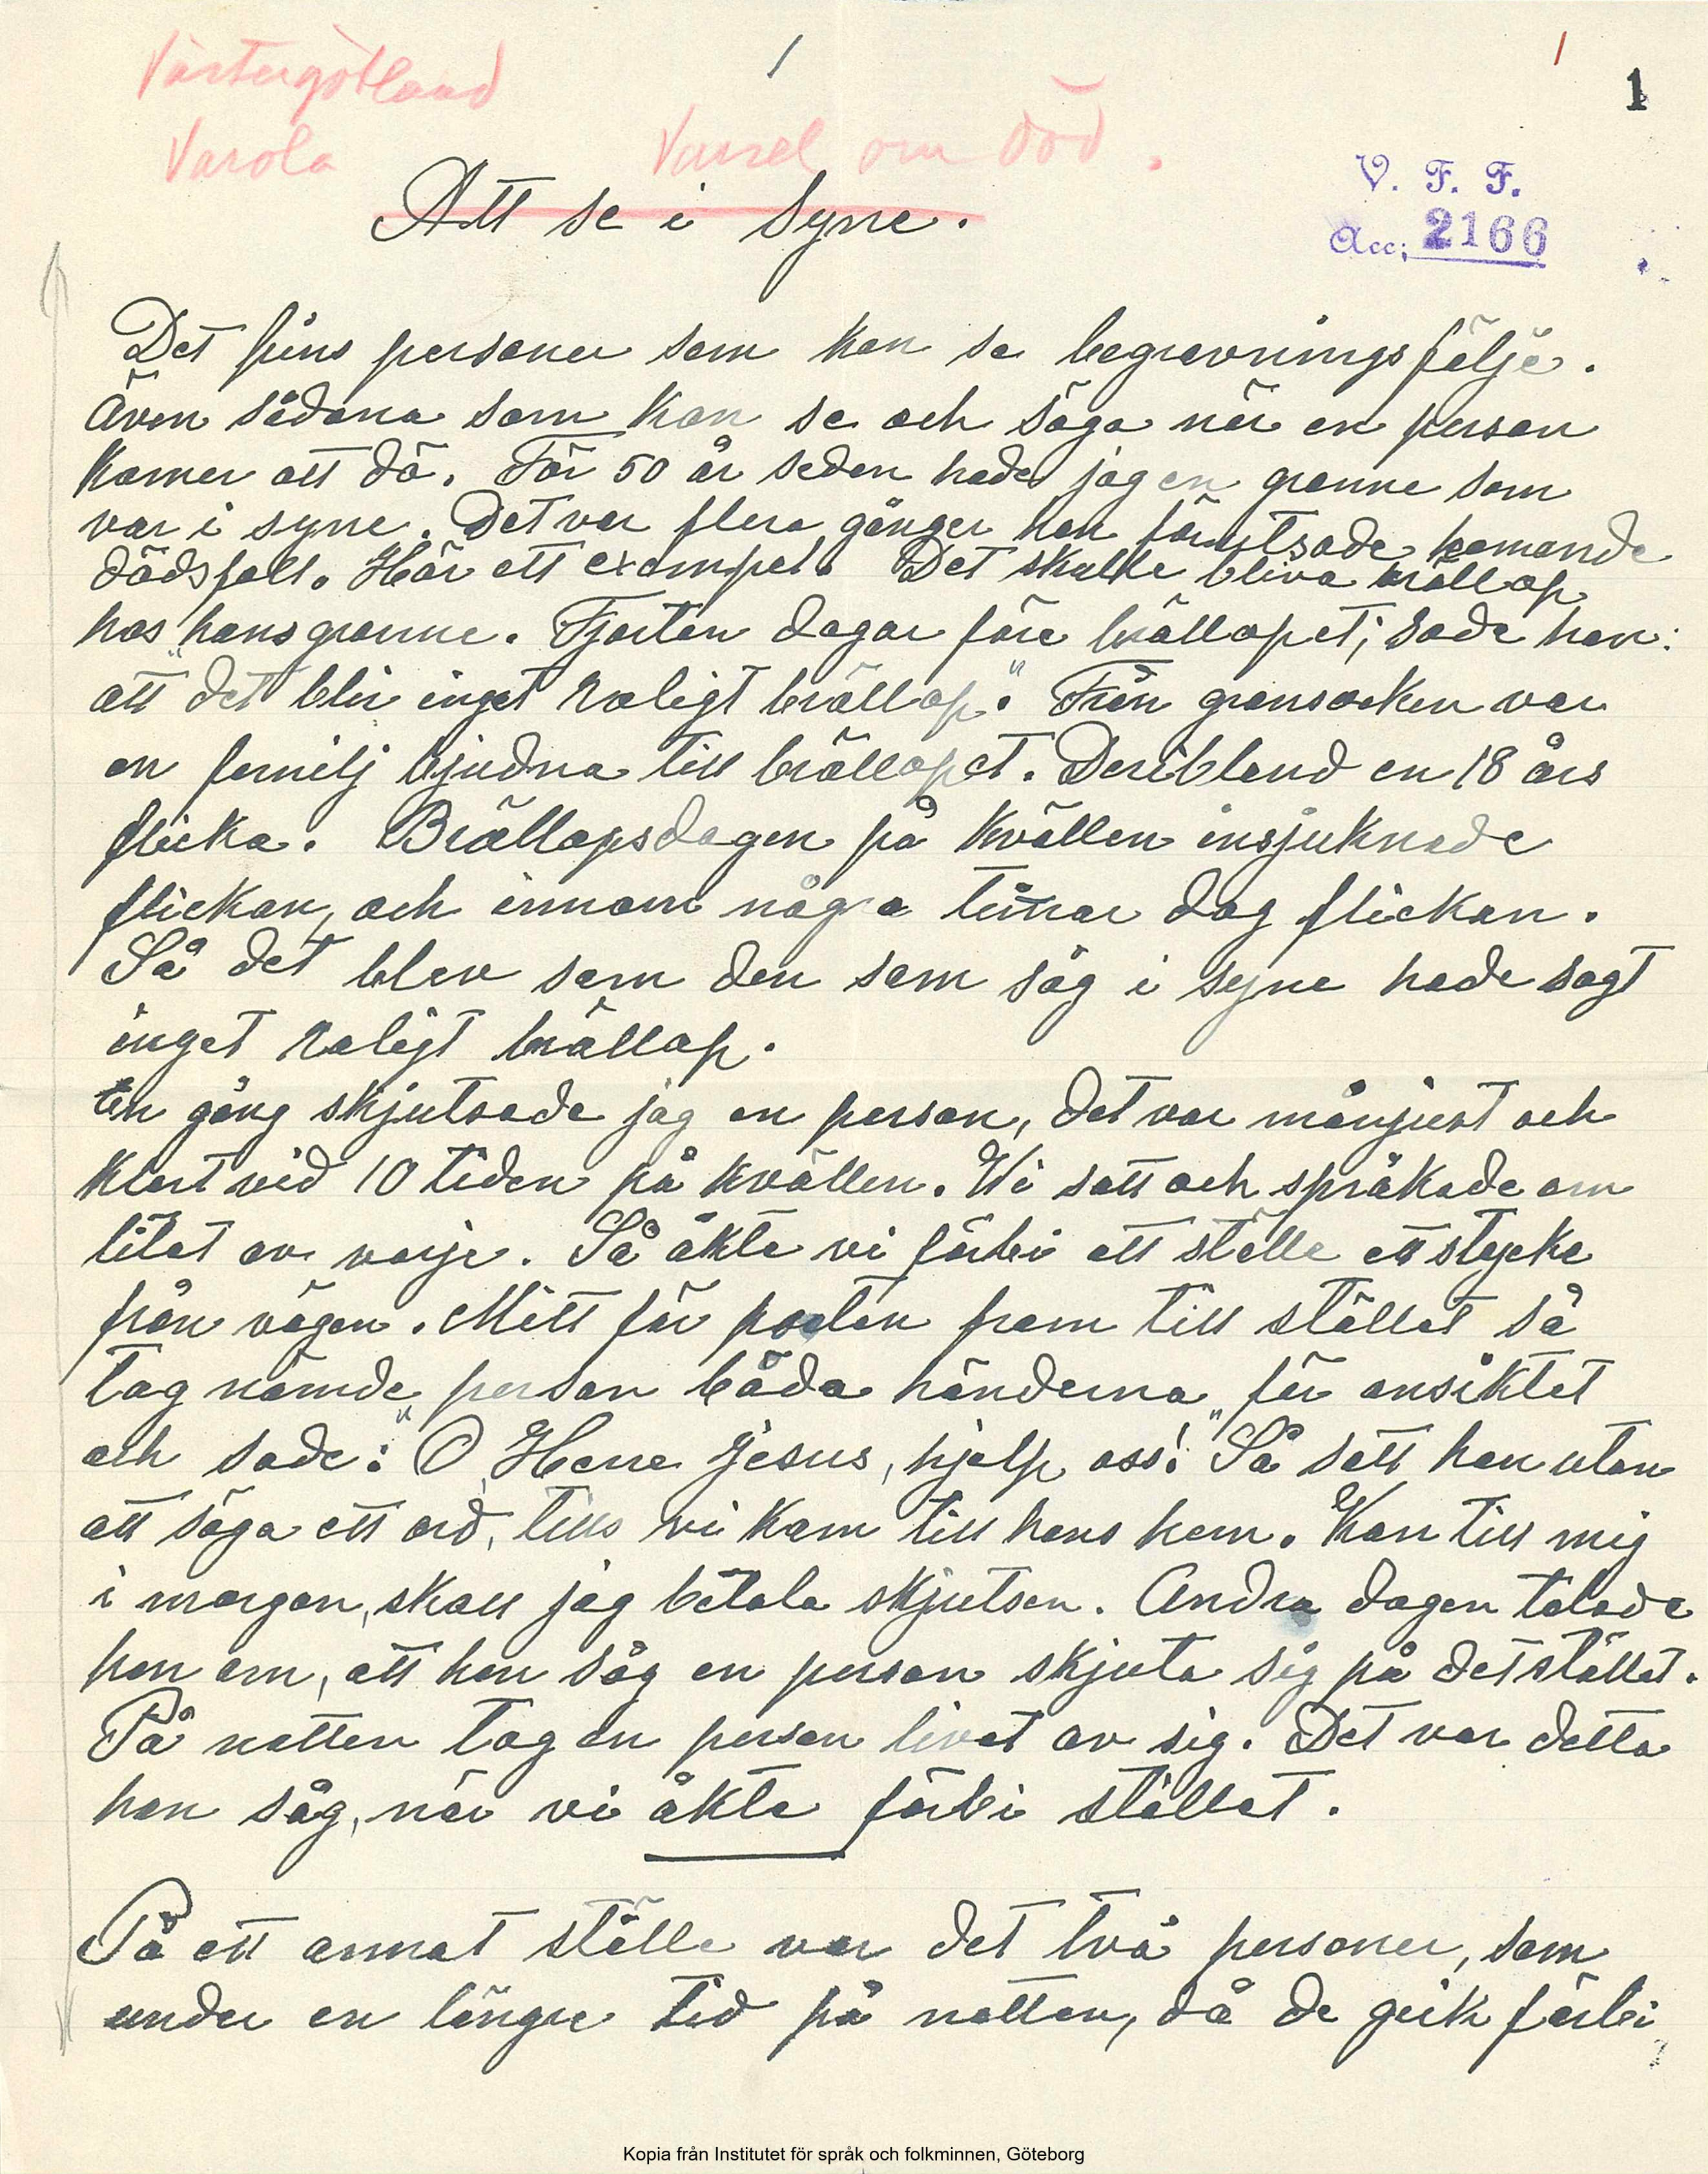 Västergötland
1
1
1
Varola
Varsel om död.
V. F. F.
Acc; 2166
Att se i syne.
Det fins personer som kan se begravningsfölje.
Även sådana som kan se och säga när en person
komer att dö. För 50 år sedan hade jag en granne som
var i syne. Det var flera gånger han förutsade komande
dödsfall. Här ett exempel. Det skulle bliva bröllop
hos hans granne. Fjorten dagar före bröllopet; sade han:
att "det blir inget roligt bröllop". Från gransocken var
en familj bjudna till bröllopet. Deribland en 18 års
flicka. Bröllopsdagen på kvällen insjuknade
flickan, och innom några timar dog flickan.
Så det blev som den som såg i syne hade sagt
inget roligt bröllop.
En gång skjutsade jag en person, det var månjust och
klart vid 10 tiden på kvällen. Vi satt och språkade om
litet av varje. Så åkte vi förbi ett ställe ett stycke
från vägen. Mitt för porten fram till stället så
tog nämde person båda händerna för ansiktet
och sade: "O, Herre Jesus, hjälp oss!" Så satt han utan
att säga ett ord, tills vi kom till hans hem. Kom till mig
i morgon, skall jag betala skjutsen. Andra dagen talade
han om, att han såg en person skjuta sig på det stället.
På natten tog en person livet av sig. Det var detta
han såg, när vi åkte förbi stället.
På ett annat ställe var det två personer, som
under en längre tid på natten, då de geik förbi
Kopia från Institutet för språk och folkminnen, Göteborg